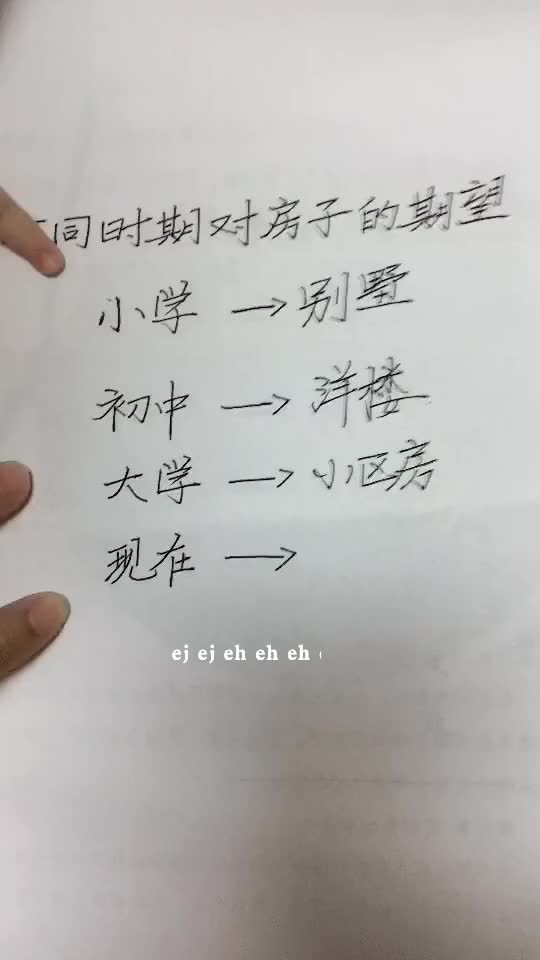 同时期对房子的期望
小学 → 别墅
初中 → 洋楼
大学 → 小区房
现在 →
ej ej eh eh eh